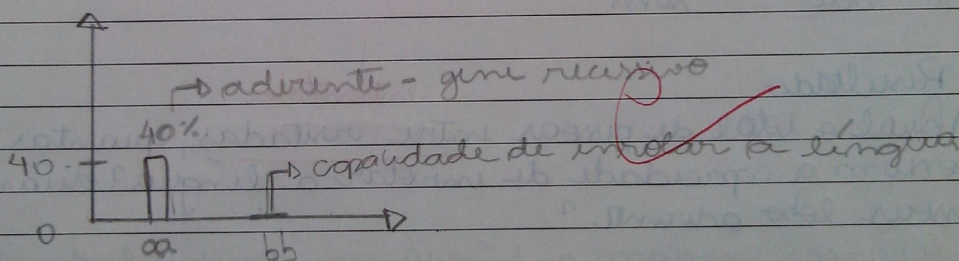 → aderente - gene recessivo
40%
40 → capacidade de enrolar a língua
0
aa bb